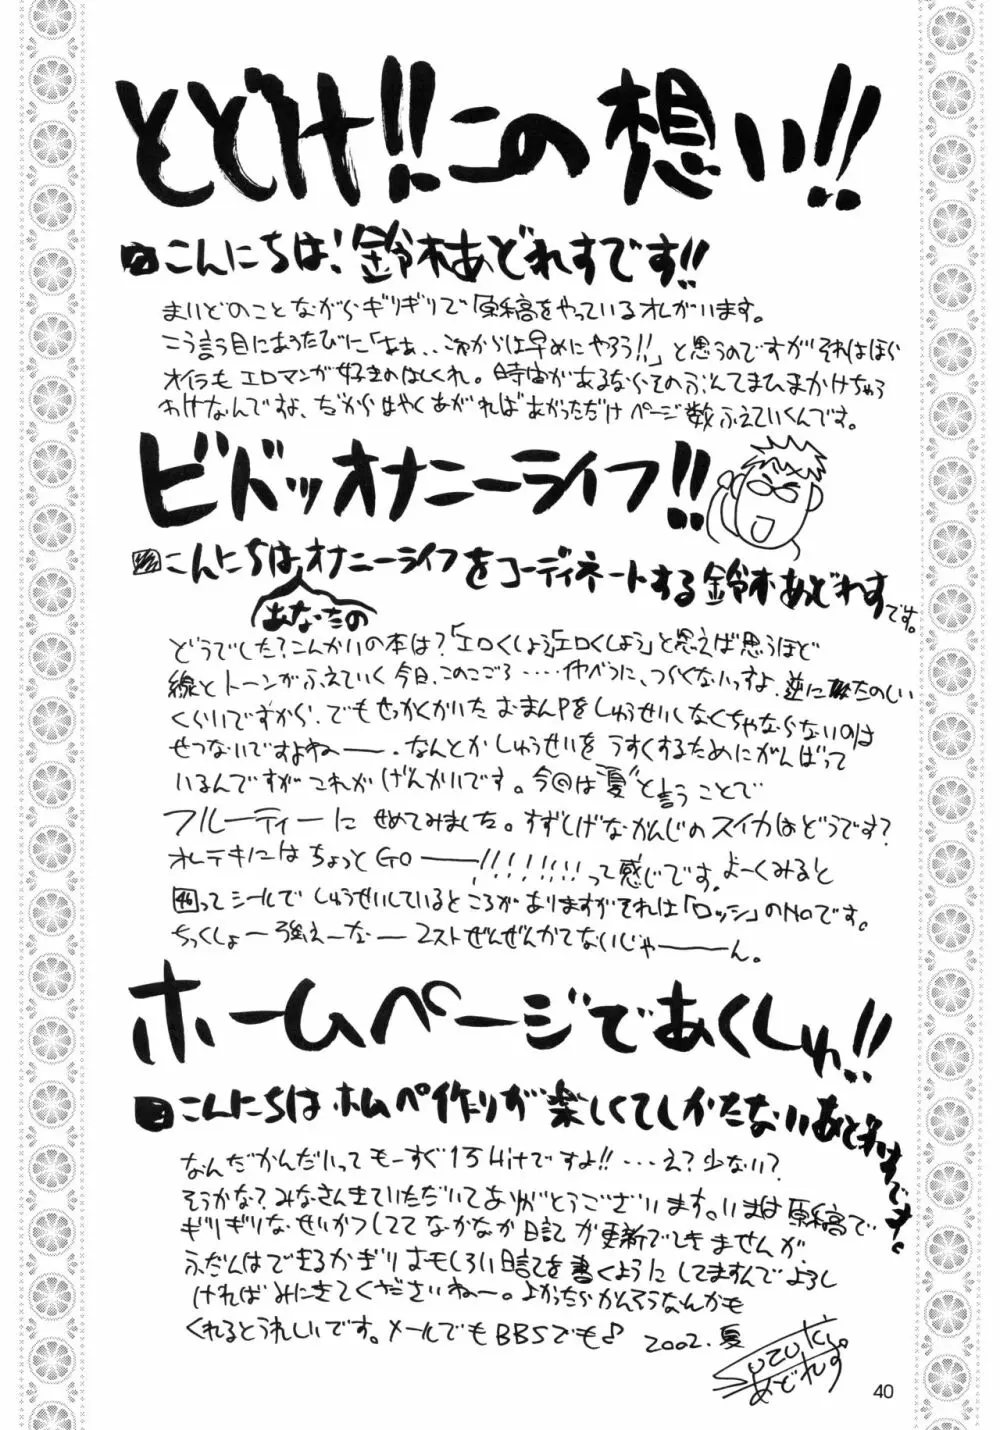 とどけ!!この想い!!
こんにちは!鈴木あどれすです!!
まいどのことながらギリギリで原稿をやっているオレがいます。
こう言う目にあうたびに「ああ..これからは早めにやろう!!」と思うのですがそれはほら
オイラもエロマンガ好きのはしくれ。時間があるならそのぶんてまひまかけちゃう
わけなんですよ、だからはやくあがればあがっただけページ数ふえていくんです。
ビバッオナニーライフ!!
こんにちはあなたのオナニーライフをコーディネートする鈴木あどれすです。
どうでした?こんかいの本は?「エロくしよう」「エロくしよう」と思えば思うほど
線とトーンがふえていく今日、このごろ・・・・・べつに、つらくないっすよ、逆にたのしい
くらいですから、でもせっかくかいたおまんPをしゅうせいしなくちゃならないのは
せつないですよねー。なんとかしゅうせいをうすくするためにがんばって
いるんですがこれがげんかいです。今回は"夏"と言うことで
フルーティーにせめてみました。すずしげなかんじのスイカはどうです?
オレテキにはちょっとGO――!!!!!!!って感じです。よーくみると
46ってシールでしゅうせいしているところがありますがそれは「ロッシ」のNoです。
ちっくしょー強えーなー 2ストぜんぜんかてないじゃーーん。
ホームページであくしゅ!!
こんにちはホムペ作りが楽しくてしかたないあどれすです。
なんだかんだいってもーすぐ1万Hitですよ!!・・・え?少ない?
そうかな?みなさんきていただいてありがとうございます。いまは原稿で
ギリギリなせいかつしててなかなか日記が更新できませんが、
ふだんはできるかぎりおもしろい日記を書くようにしてますんでよろし
ければみにきてくださいねー。よかったらかんそうなんかも
くれるとうれしいです。メールでもBBSでも♪ 2002.夏
Suzuki
あどれす
40